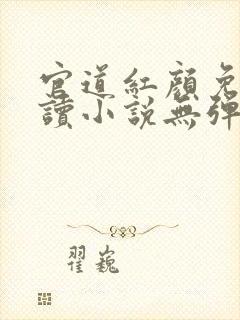 官道紅顏免
讀小說無彈
翟巍